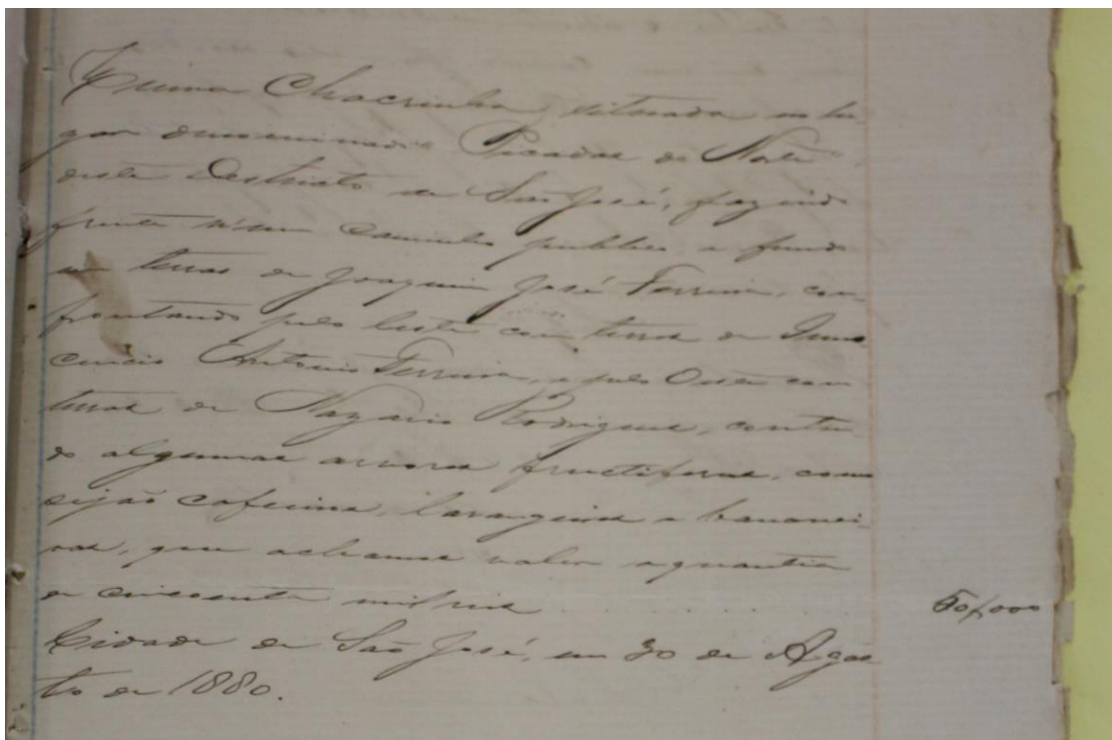 Huma Chacrinha, situada no lu-
gar denominado Picadas do Norte,
deste Destricto de São José, fazendo
frente n'um caminho publico e fundo
em terras de Joaquim José Ferreira, con-
frontando pelo leste com terras de Inno-
cencio Antonio Ferreira, e pelo Oeste com
terras de Nazario Rodrigues, conten-
do algumas arvores fructiferas, como
sejão cafeeiros, larangeiras e bananei-
ras, que achamos valer a quantia
de cincoenta mil reis . . . . . . . . 50$000
Cidade de São José, em 30 de Agos-
to de 1880.